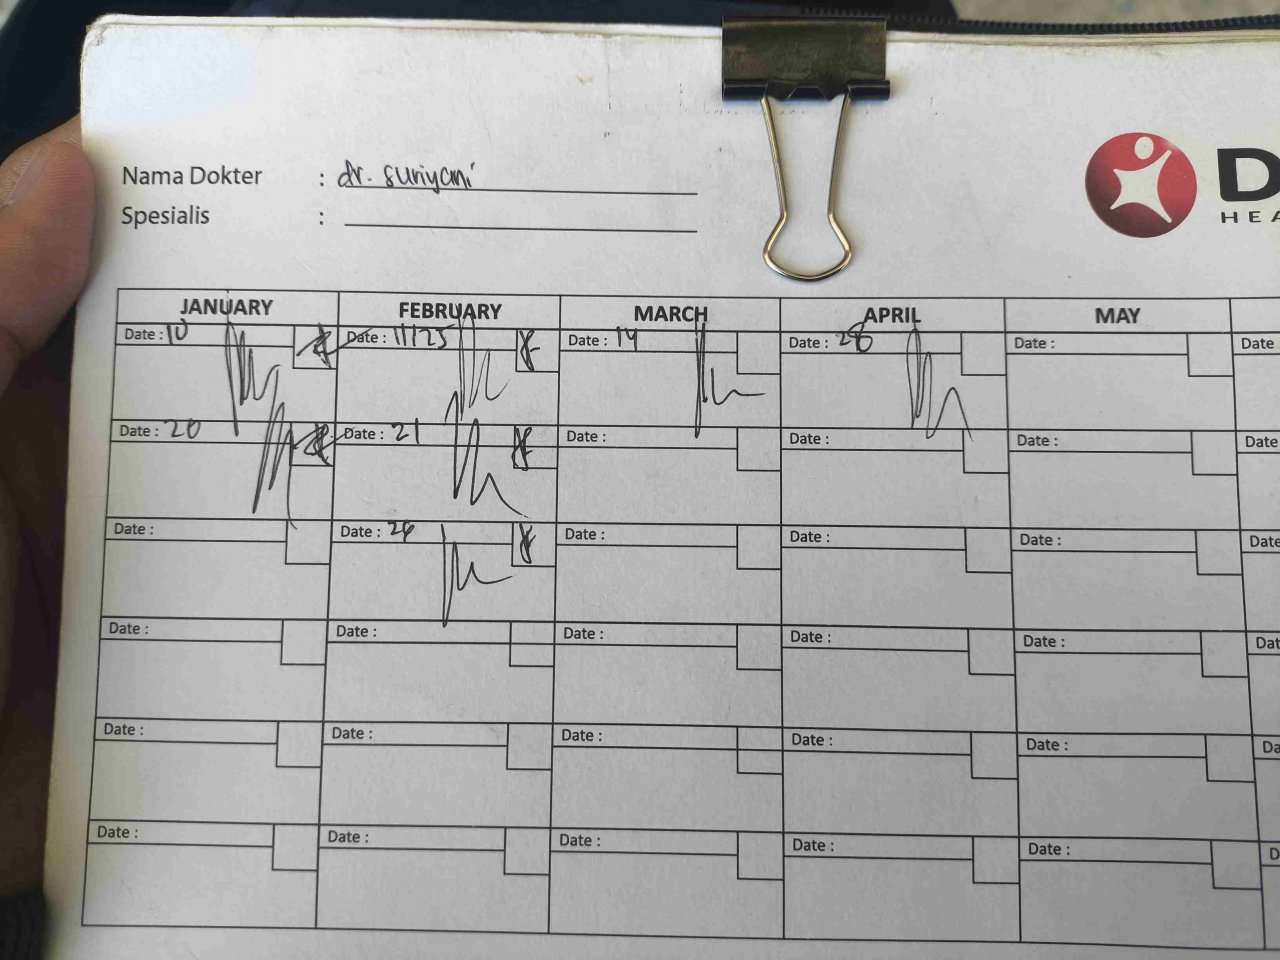 Nama Dokter : dr. suriyani
Spesialis :
D
HEA
JANUARY FEBRUARY MARCH APRIL MAY
Date : 10 Date : 11/25 Date : 14 Date : 28 Date : Date
Date : 20 Date : 21 Date : Date : Date : Date
Date : Date : Date : Date : Date : Date
Date : Date : Date : Date : Date : Dat
Date : Date : Date : Date : Date : Da
Date : Date : Date : Date : Date : D